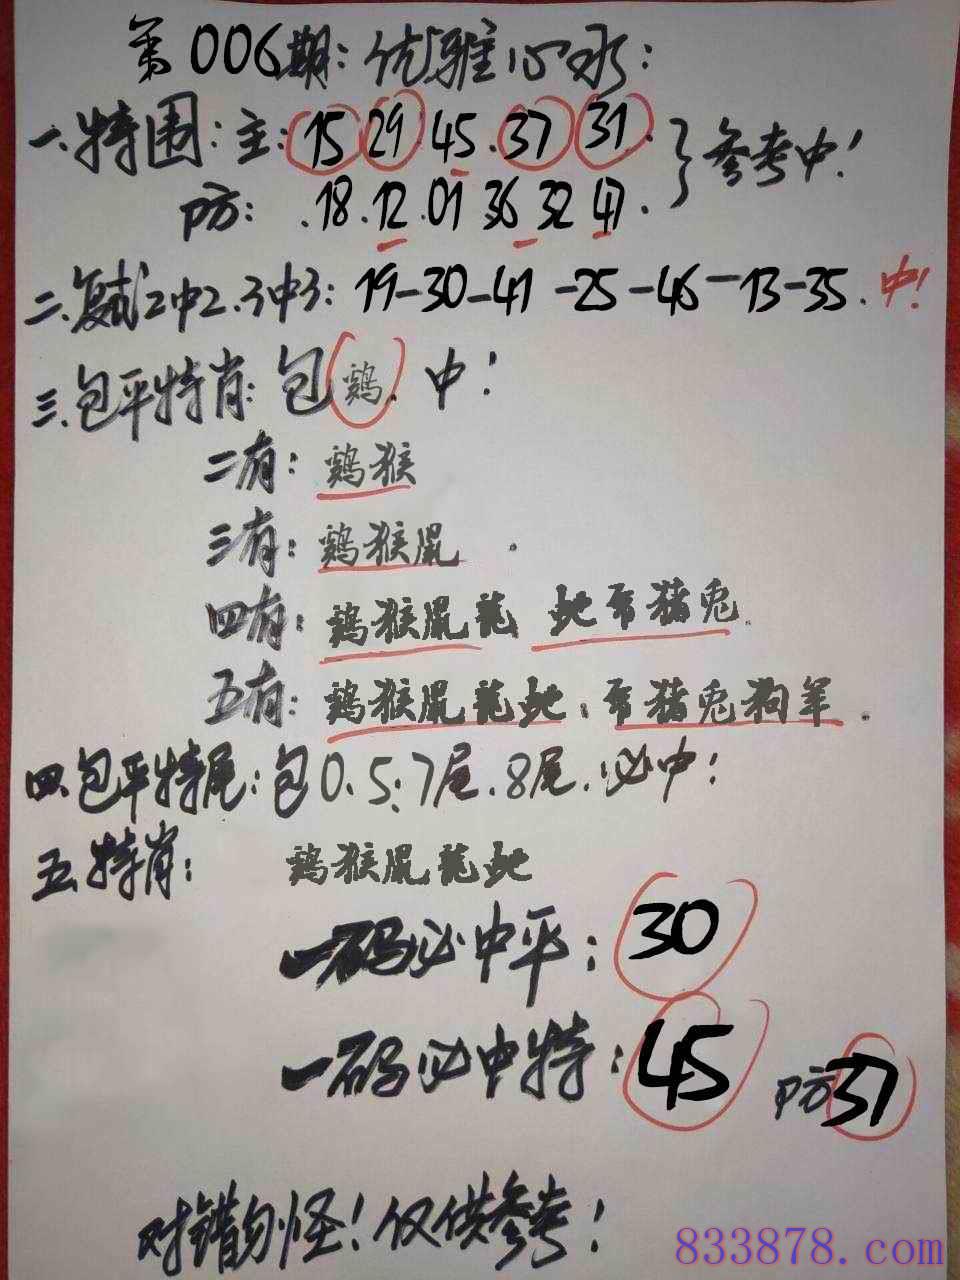 第006期：优雅心水：
一.特围：主：15 29 45.37 31.
防：.18.12.01 36 32 47.
}参考中！
二.复试2中2.3中3：19-30-41-25-46-13-35.中！
三.包平特肖：包鸡.中！
二有：鸡猴
三有：鸡猴鼠.
四有：鸡猴鼠龙 蛇 猪兔
五有：鸡猴鼠龙蛇： 猪兔狗羊.
四.包平特尾：包0.5：7尾.8尾.必中！
五.特肖：鸡猴鼠龙蛇
一码必中平：30
一码必中特：45 防37
对错勿怪！仅供参考！
833878.com